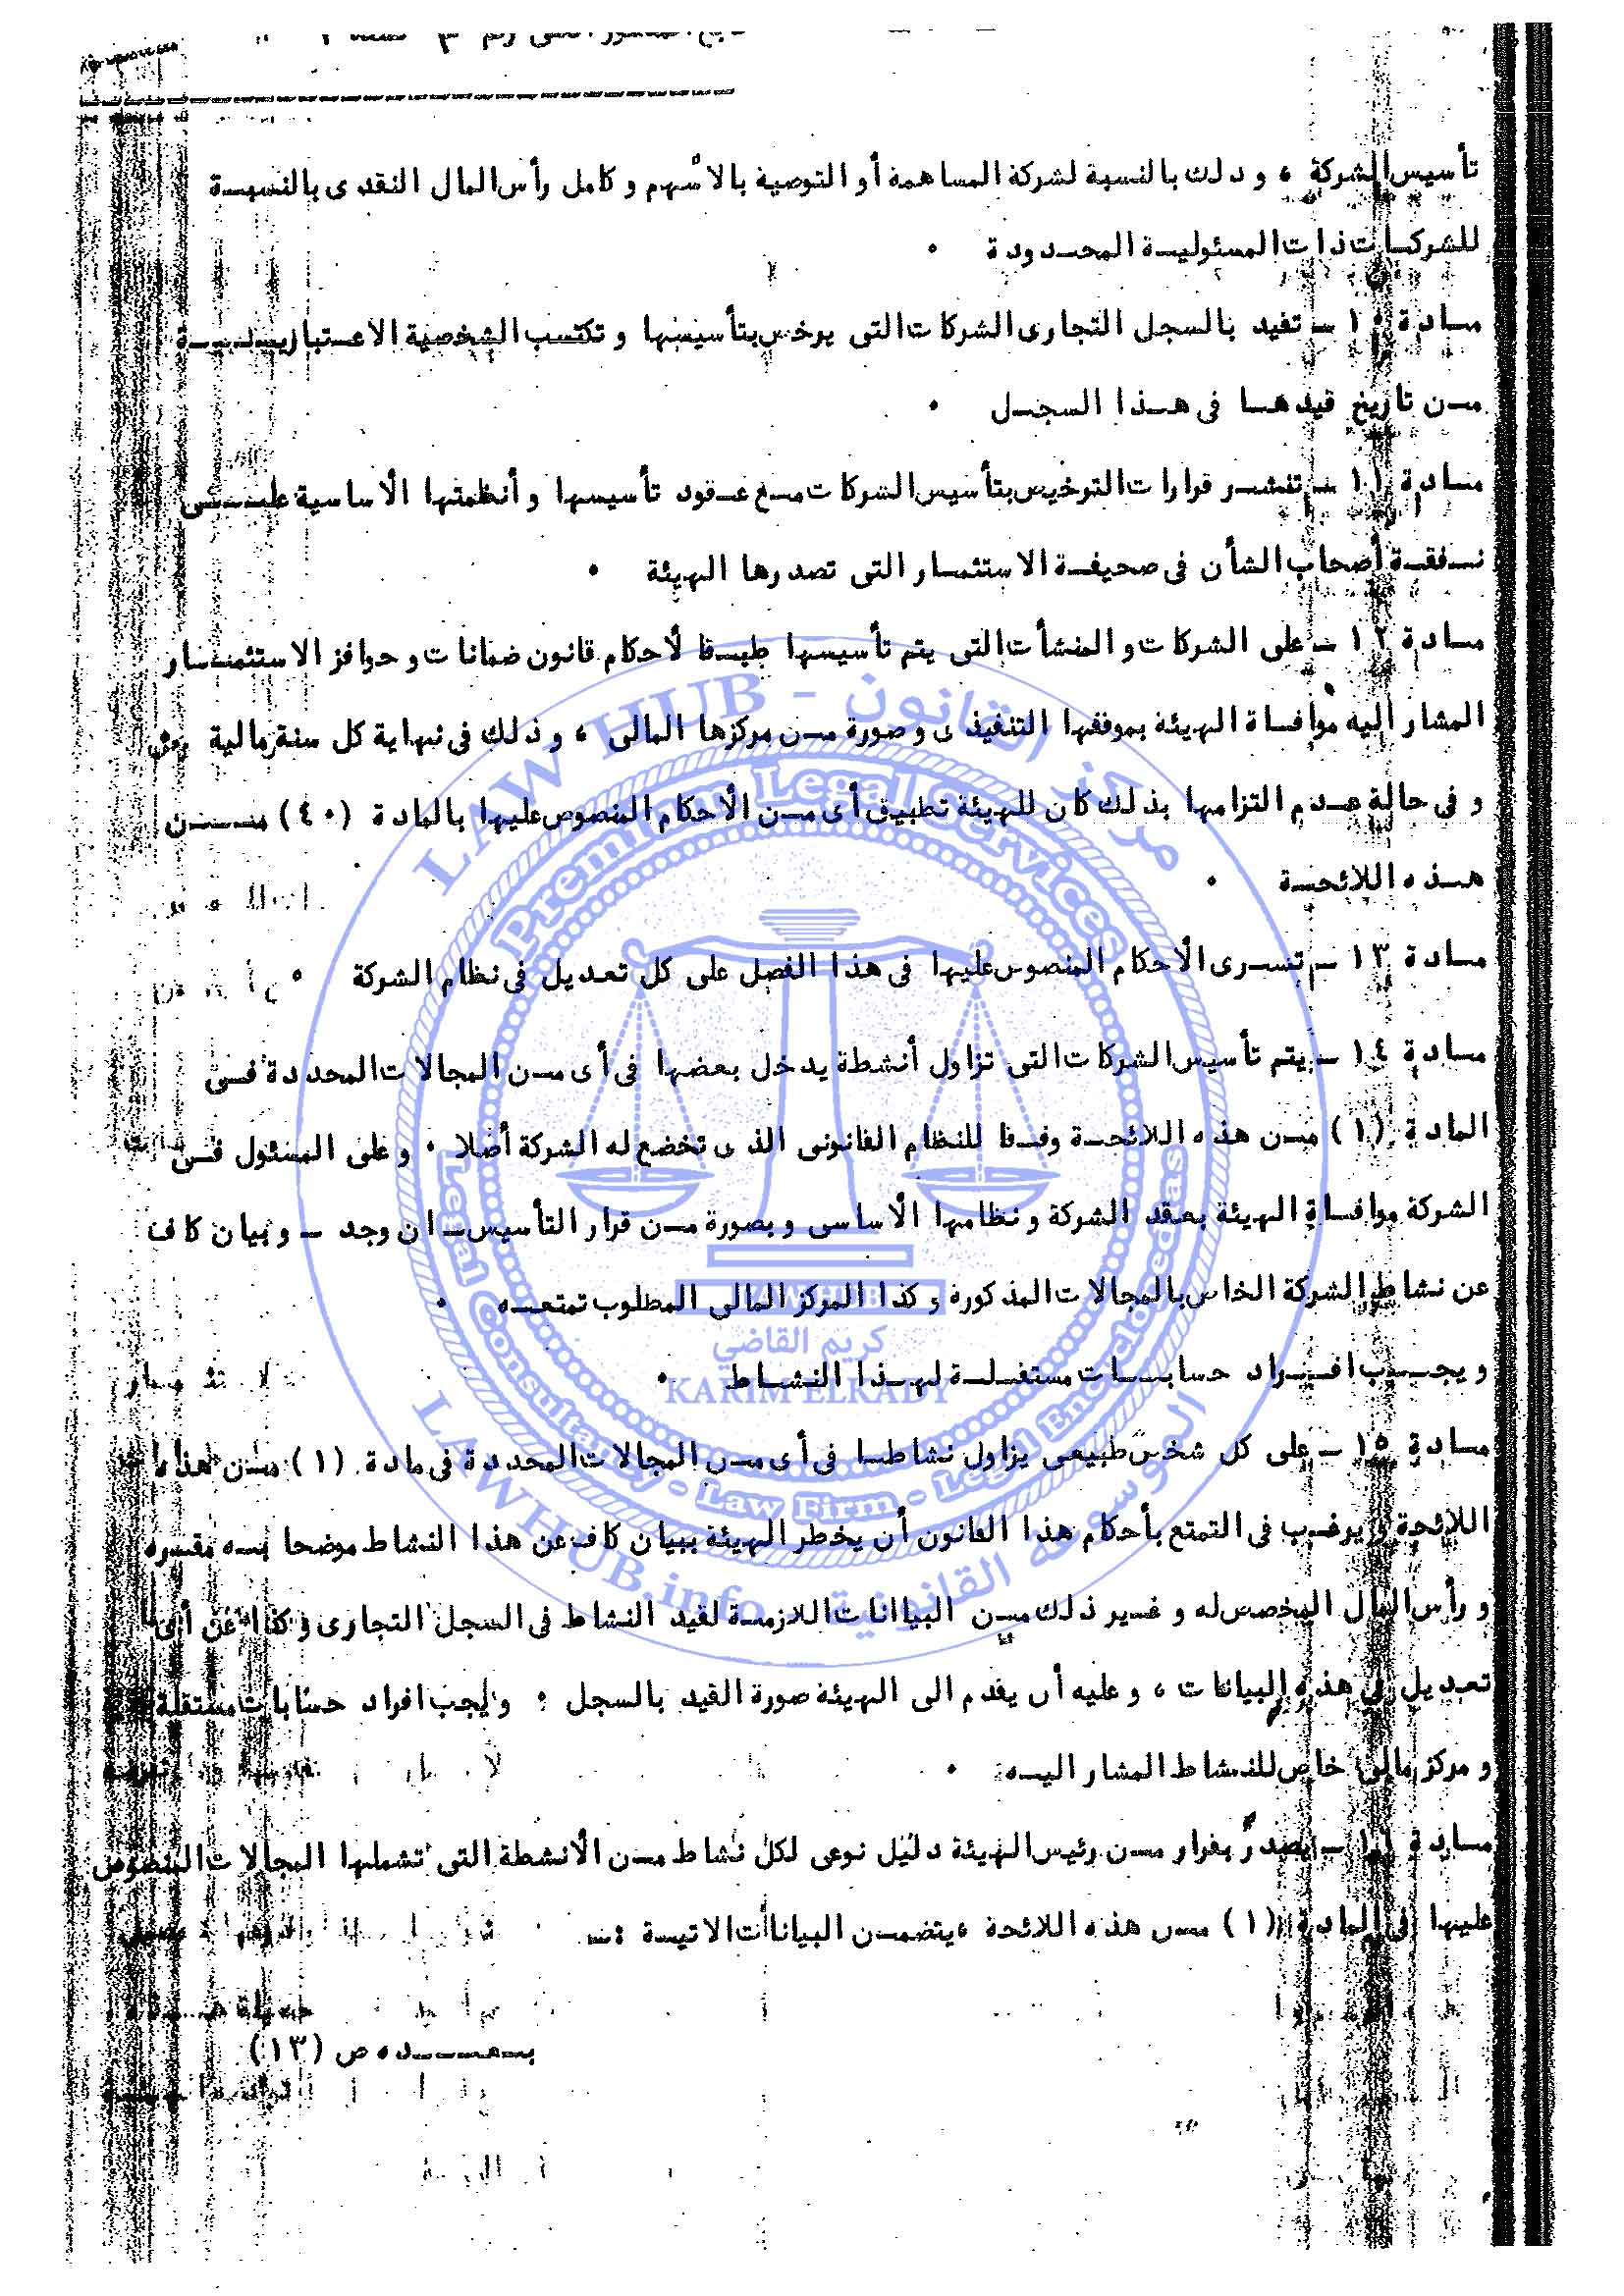 تأسيس الشركة ، وذلك بالنسبة لشركة المساهمة أو التوصية بالأسهم وكامل رأس المال النقدى بالنسبة
للشركات ذات المسئولية المحدودة .
مادة ١٠ ــ تقيد بالسجل التجارى الشركات التى يرخص بتأسيسها وتكتسب الشخصية الاعتبارية
من تاريخ قيدها فى هذا السجل .
مادة ١١ ــ تنشر قرارات الترخيص بتأسيس الشركات مع عقود تأسيسها وأنظمتها الأساسية على
نفقة أصحاب الشأن فى صحيفة الاستثمار التى تصدرها الهيئة .
مادة ١٢ ــ على الشركات والمنشأت التى يتم تأسيسها طبقا لأحكام قانون ضمانات وحوافز الاستثمار
المشار اليه موافاة الهيئة بموقفها التنفيذى وصورة من مركزها المالى ، وذلك فى نهاية كل سنة مالية
وفى حالة عدم التزامها بذلك كان للهيئة تطبيق أى من الأحكام المنصوص عليها بالمادة (٤٠) من
هذه اللائحة .
مادة ١٣ ــ تسرى الأحكام المنصوص عليها فى هذا الفصل على كل تعديل فى نظام الشركة .
مادة ١٤ ــ يتم تأسيس الشركات التى تزاول أنشطة يدخل بعضها فى أى من المجالات المحددة فى
المادة (١) من هذه اللائحة وفقا للنظام القانونى الذى تخضع له الشركة أصلا . وعلى المسئول فى
الشركة موافاة الهيئة بعقد الشركة ونظامها الأساسى وبصورة من قرار التأسيس ــ ان وجد ــ وبيان كاف
عن نشاط الشركة الخاص بالمجالات المذكورة وكذا المركز المالى المطلوب تمتعه .
ويجب افراد حسابات مستقلة لهذا النشاط .
مادة ١٥ ــ على كل شخص طبيعى يزاول نشاطا فى أى من المجالات المحددة فى مادة (١) من هذه
اللائحة ويرغب فى التمتع بأحكام هذا القانون أن يخطر الهيئة ببيان كاف عن هذا النشاط موضحا به مقره
ورأس المال المخصص له وغير ذلك من البياانات اللازمة لقيد النشاط فى السجل التجارى وكذا عن أى
تعديل فى هذه البيانات ، وعليه أن يقدم الى الهيئة صورة القيد بالسجل . ويجب افراد حسابات مستقلة
ومركز مالى خاص للنشاط المشار اليه .
مادة ١٦ ــ يصدر بقرار من رئيس الهيئة دليل نوعى لكل نشاط من الأنشطة التى تشملها المجالات المنصوص
عليها فى المادة (١) من هذه اللائحة ، يتضمن البيانات الاتية :ــ
بعده ص (١٣)
LAW HUB - مركز القانون
Premium Legal Services
LAWHUB
كريم القاضي
KARIM ELKADY
Legal Consultancy - Law Firm - Legal Encyclopedias
LAWHUB.info الموسوعة القانونية